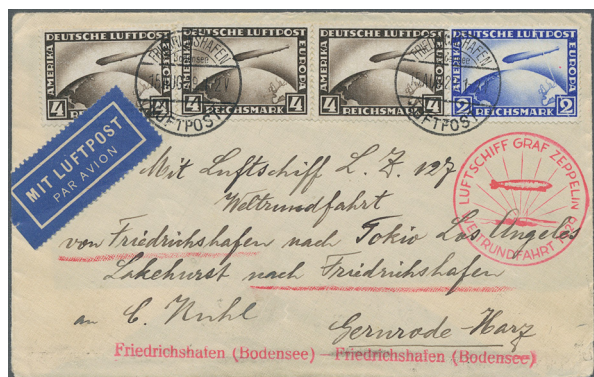 DEUTSCHE LUFTPOST DEUTSCHE LUFTPOST DEUTSCHE LUFTPOST DEUTSCHE LUFTPOST
AMERIKA EUROPA AMERIKA EUROPA AMERIKA EUROPA AMERIKA EUROPA
4 REICHSMARK 4 4 REICHSMARK 4 4 REICHSMARK 4 2 REICHSMARK 2
FRIEDRICHSHAFEN
LUFTPOST
FRIEDRICHSHAFEN
LUFTPOST
MIT LUFTPOST
PAR AVION
LUFTSCHIFF GRAF ZEPPELIN
WELTRUNDFAHRT 1929
Mit Luftschiff L. Z. 127
Weltrundfahrt
von Friedrichshafen nach Tokio Los Angeles
Lakehurst nach Friedrichshafen
an C. Kühl
Gernrode Harz
Friedrichshafen (Bodensee) — Friedrichshafen (Bodensee)